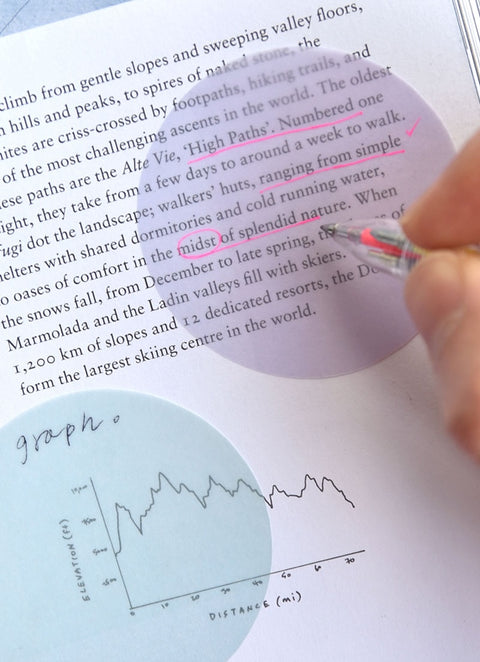 climb from gentle slopes and sweeping valley floors,
hills and peaks, to spires of naked stone, the
ites are criss-crossed by footpaths, hiking trails, and
of the most challenging ascents in the world. The oldest
ese paths are the Alte Vie, ‘High Paths’. Numbered one
ight, they take from a few days to around a week to walk.
fugi dot the landscape; walkers’ huts, ranging from simple
elters with shared dormitories and cold running water,
o oases of comfort in the midst of splendid nature. When
the snows fall, from December to late spring, of
Marmolada and the Ladin valleys fill with skiers.
1,200 km of slopes and 12 dedicated resorts, the Do
form the largest skiing centre in the world.
graph.
ELEVATION (ft)
0 10 20 30 40 50 60 70
DISTANCE (mi)